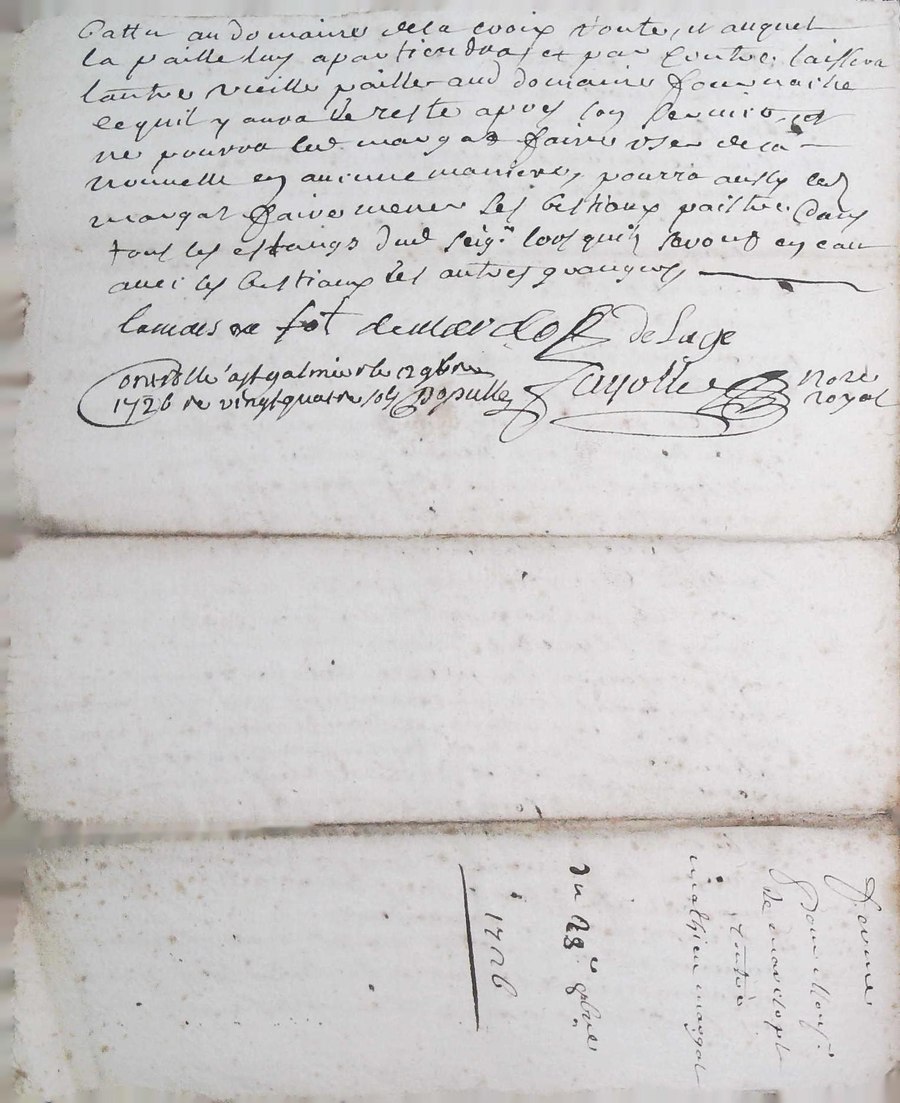 Battu au domaine de la croix toute, et auquel
la paille luy apartiendra, et par contre laissera
lautre vieille paille aud domaine
ce quil y aura de reste apres son et
ne pourra led margat faire user de la
nouvelle en aucune maniere, pourra aussy led
margat faire mener les bestiaux paistre dans
tous les estangs dud seigr lors quils seront en eau
avec les bestiaux des autres grangers
de mardo de Lage
Controllé a st galmier le 12 9bre
1726 re vingt quatre sols Fayolle nore
royal
ferme
pour Monsr
de
contre
mathieu margat
du 9bre
1726